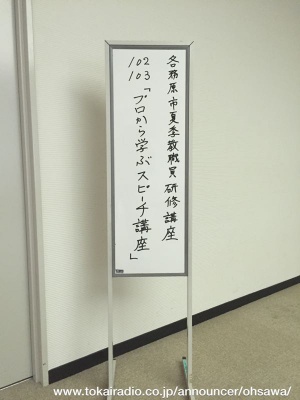 各務原市夏季教職員研修講座
102
103「プロから学ぶスピーチ講座」
www.tokairadio.co.jp/announcer/ohsawa/